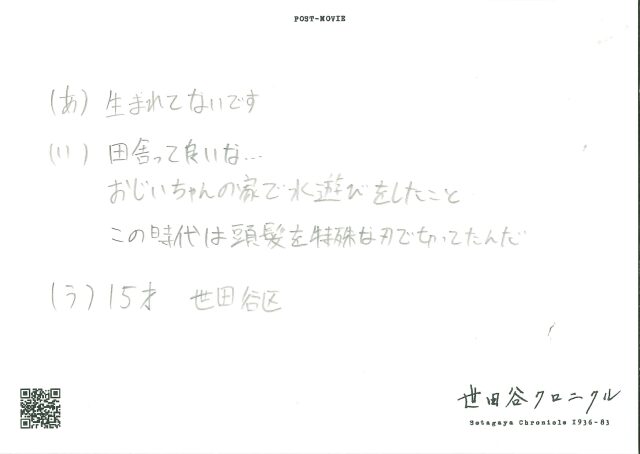 POST-MOVIE
(あ) 生まれてないです
(い) 田舎って良いな…
おじいちゃんの家で水遊びをしたこと
この時代は頭髪を特殊な刃で切ってたんだ
(う) 15才 世田谷区
世田谷クロニクル
Setagaya Chronicle 1936-83